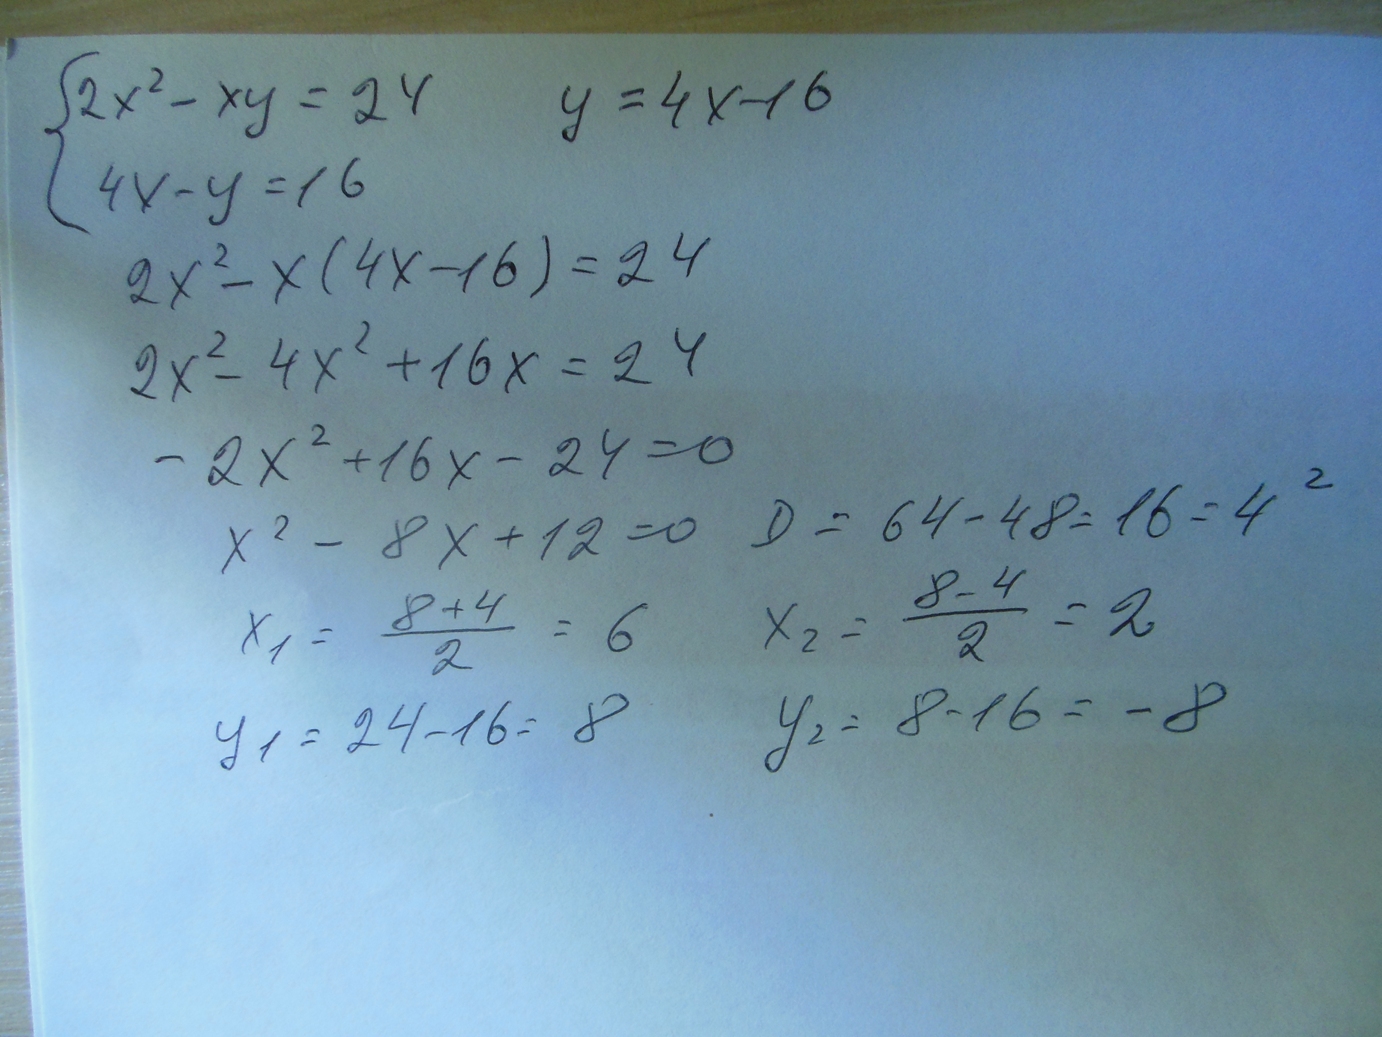 {2x² - xy = 24    y = 4x - 16
4x - y = 16
2x² - x(4x - 16) = 24
2x² - 4x² + 16x = 24
- 2x² + 16x - 24 = 0
x² - 8x + 12 = 0    D = 64 - 48 = 16 = 4²
x₁ = (8+4)/2 = 6    x₂ = (8-4)/2 = 2
y₁ = 24 - 16 = 8    y₂ = 8 - 16 = - 8